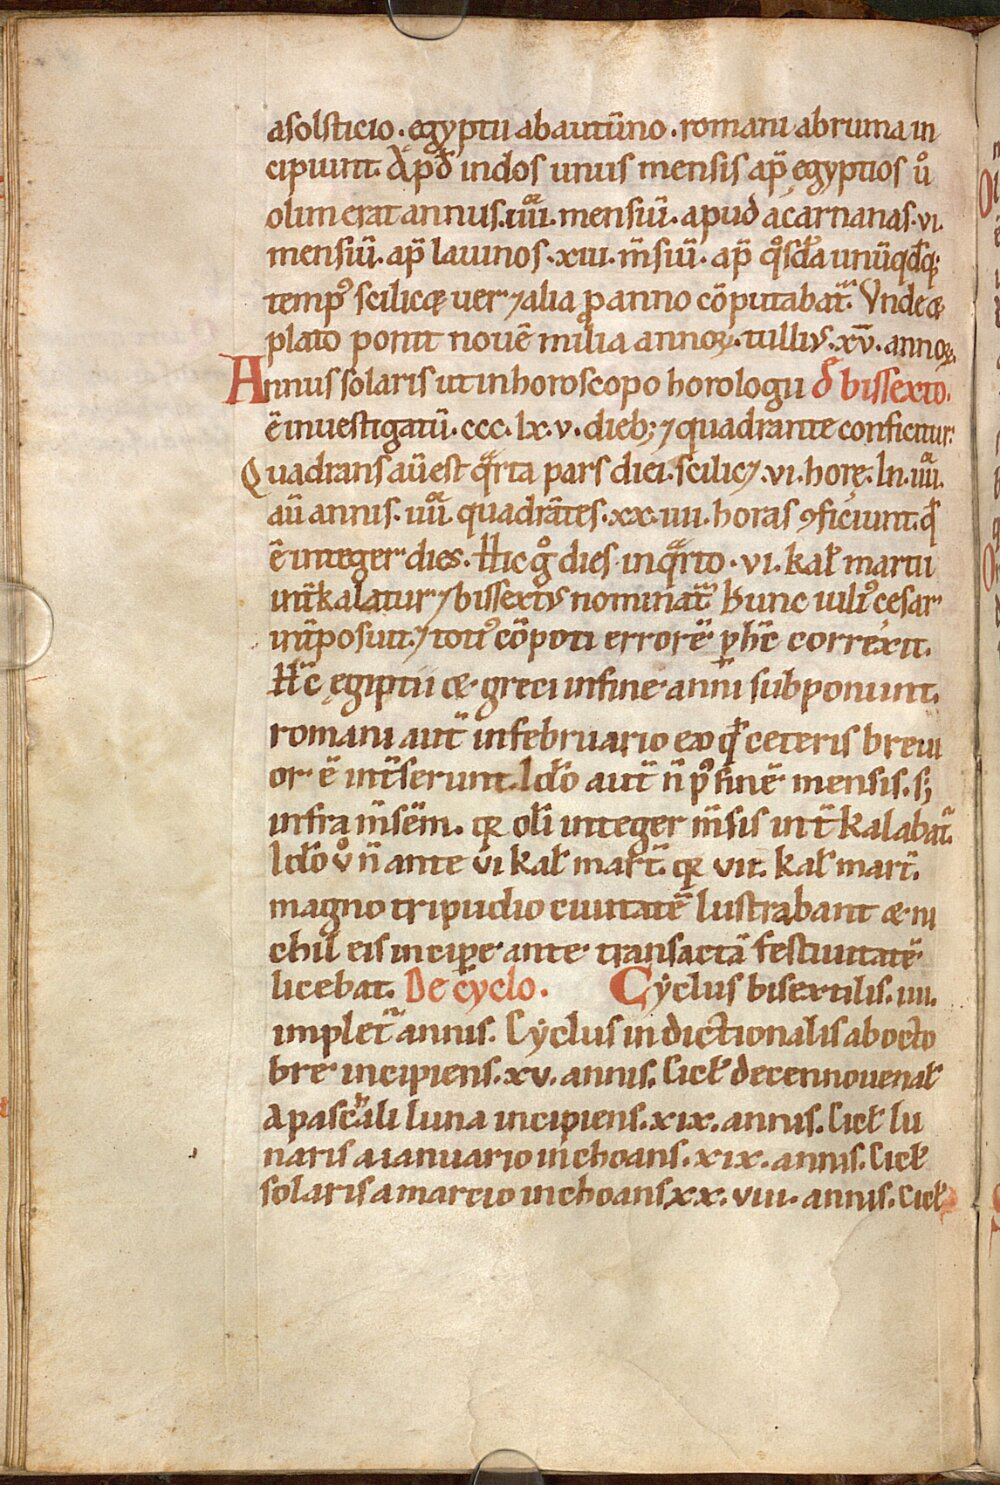 asolsticio. egyptii abautũno. romani abruma in
cipiunt. Apđ indos unus mensis ap̃ egyptios ů
olim erat annus. iiiiᵃ. mensiũ. apud acarnanas. vi.
mensiũ. ap̃ lauinos. xiii. m̃siũ. ap̃ qͦsđa unũqđqꝫ
tempꝰ scilicæ uer ⁊ alia ꝓ anno cõputabat̃. Vnde &
plato ponit nouẽ milia annoꝝ. tullius. xv̄. annoꝝ.
Annus solaris ut in horoscopo horologii đ bissexto.
ẽ inuestigatũ. ccc. lx. v. diebꝫ ⁊ quadrante conficitur.
Quadrans aũ est qᵃrta pars diei. scilicꝫ. vi. horę. In. iiiiᵃ.
aũ annis. iiiiᵃ. quadrãtes. xx. iiii. horas ꝯficiunt. qđ
ẽ integer dies. Hic gͦ dies in qᵃrto. vi. kał martii
int̃kalatur ⁊ bissextus nominat̃. hunc iuliꝰ cesar
int̃posuit. ⁊ totiꝰ cõpoti errorẽ p̱ hc̃ correxit.
Hc̃ ęgiptii & greci in fine anni subponunt.
romani aut̃ in februario eo qđ ceteris breui
or ẽ int̃serunt. Idõ aut̃ ñ pᵒ finẽ mensis. sꝫ
infra m̃sẽm. qꝛ oli integer m̃sis int̃kalabat̃.
Idõ ů ñ ante vi kał mart̃. qꝛ vii. kał mart̃.
magno tripudio ciuitatẽ lustrabant & ni
chil eis incipe ante transactã festiuitatẽ
licebat. De cyclo. Cyclus bisextilis. iiii.
implet̃ annis. Cyclus indictionalis ab octo
bre incipiens. xv. annis. Cicł decennouenał
a pascħali luna incipiens. xix. annis. Cicł lu
naris a ianuario inchoans. xix. annis. Cicł
solaris a marcio inchoans xx. viii. annis. Cicł